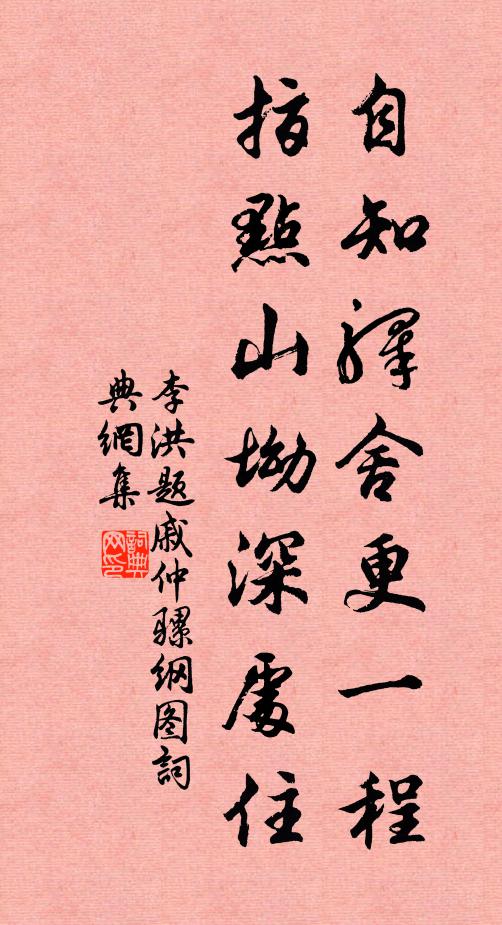 自知驛舍更一程
指點山坳深處住
李洪题戚仲骡纲图詞
典網集
詞典
网印